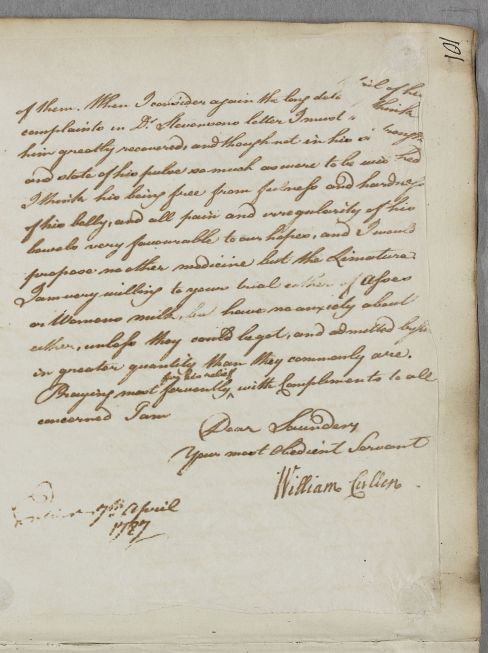 101
of them. When I consider again the long detail of his
complaints in Dr. Stevensons letter I must think
him greatly recovered, and though not in his
and state of his pulse so much as were to be wished
I think his being free from fulness and hardness
of his belly, and all pain and irregularity of his
bowels very favourable to our hopes, and I would
propose no other medicine but the Limatura
I am very willing to your trial either of Asses
or Womans milk, but have no anxiety about
either, unless they could be got, and admitted
in greater quantity than they commonly are.
for his relief
Praying most fervently, with Compliments to all
concerned I am
Dear Saunders
Your most obedient Servant
William Cullen
7th April
1787